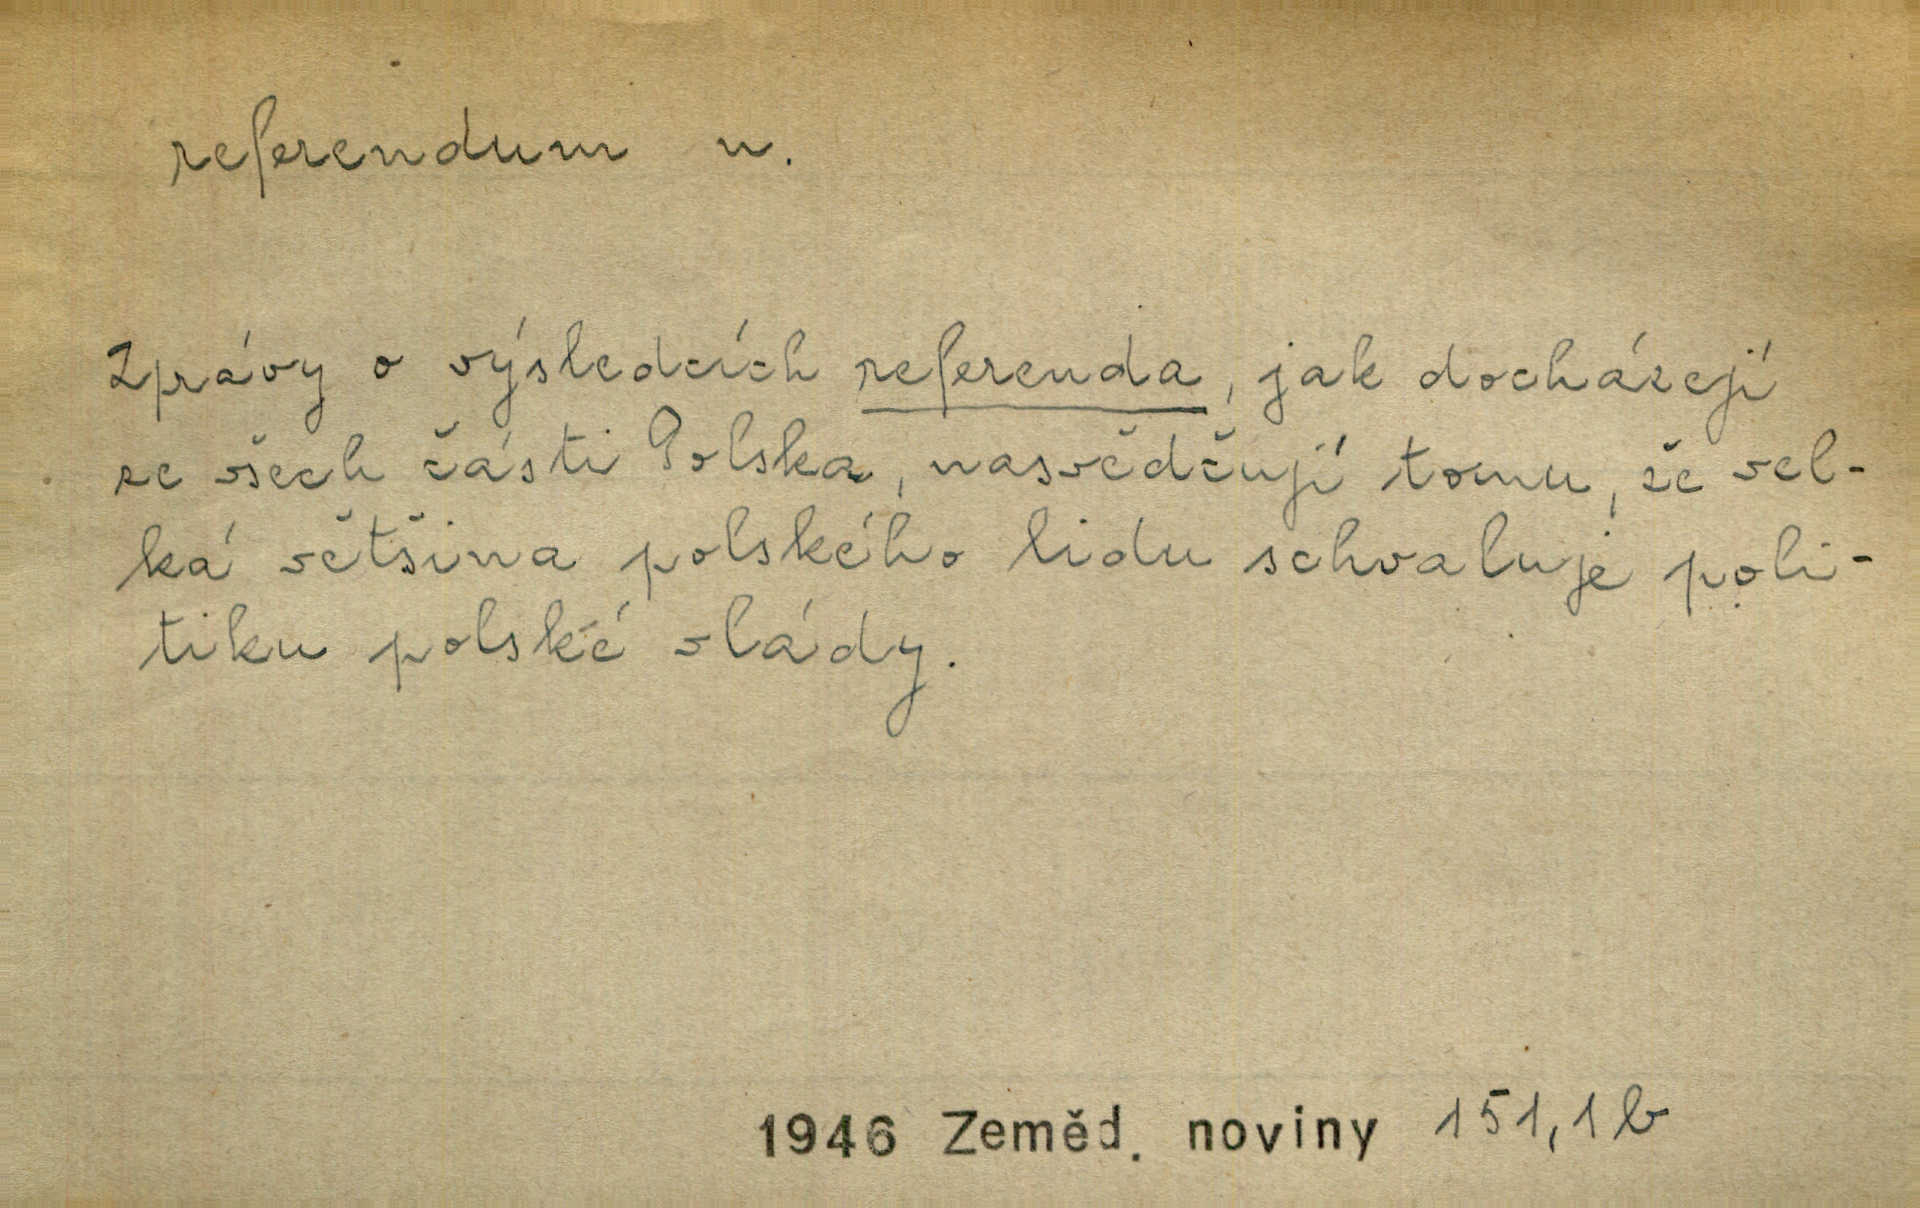 referendum n.
Zprávy o výsledcích referenda, jak docházejí
ze všech části Polska, nasvědčují tomu, že vel-
ká většina polského lidu schvaluje poli-
tiku polské vlády.
1946 Zeměd. noviny 151,1b